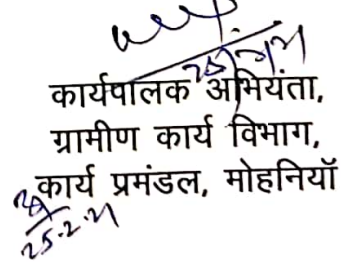 कार्यपालक अभियंता,
ग्रामीण कार्य विभाग,
कार्य प्रमंडल, मोहनियॉ
25.2.21